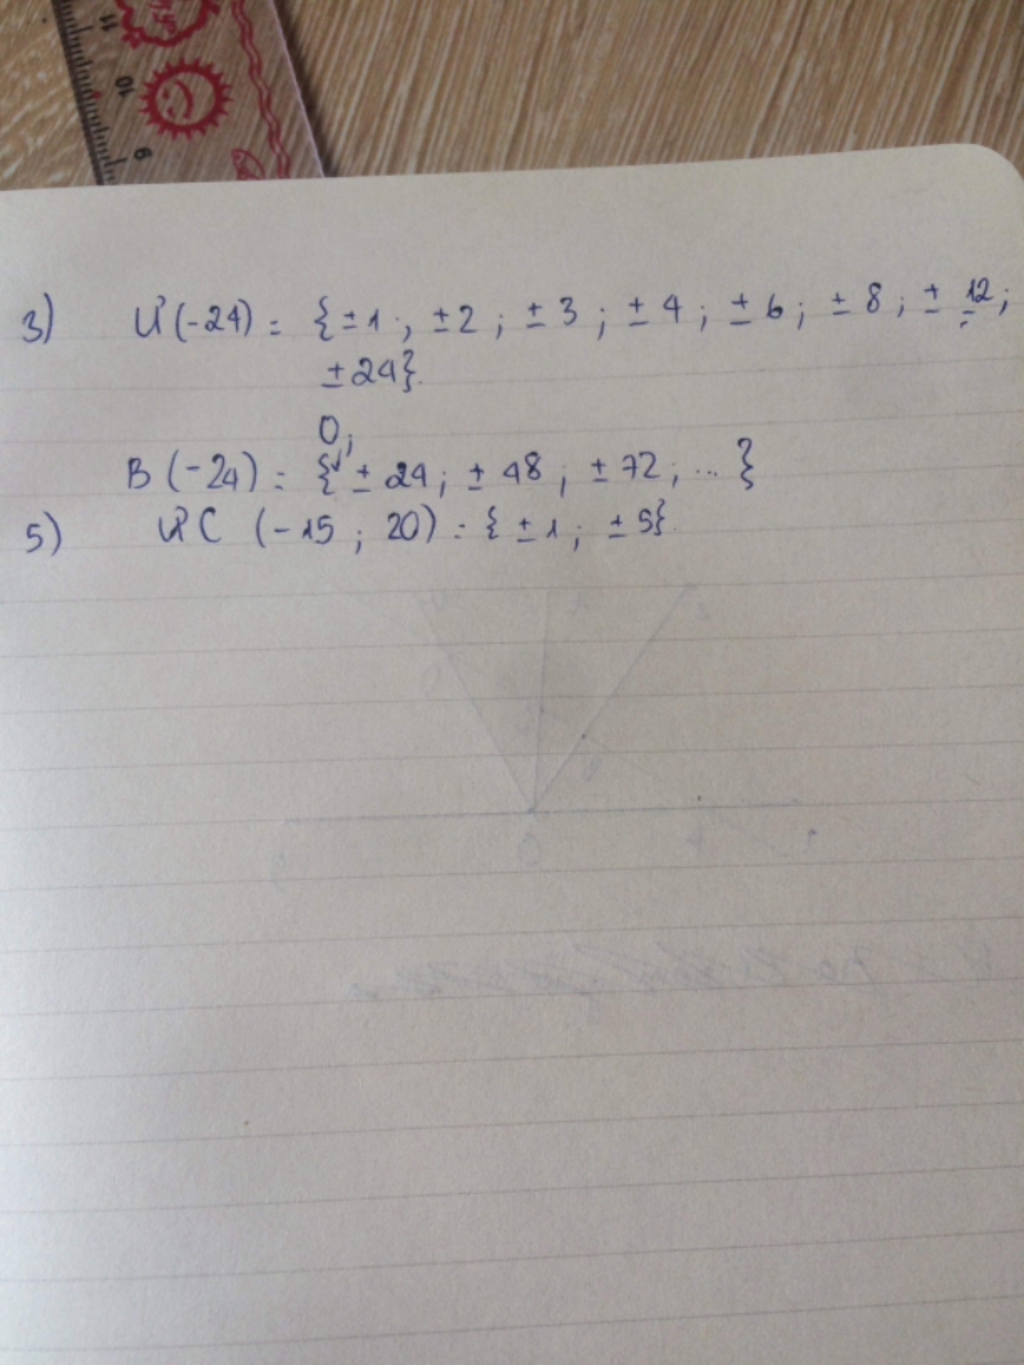 11
10
9
3) Ư(-24) = {±1; ±2; ±3; ±4; ±6; ±8; ±12;
±24}.
0;
B(-24) = {±24; ±48; ±72; ...}
5) ƯC (-15; 20) = {±1; ±5}.